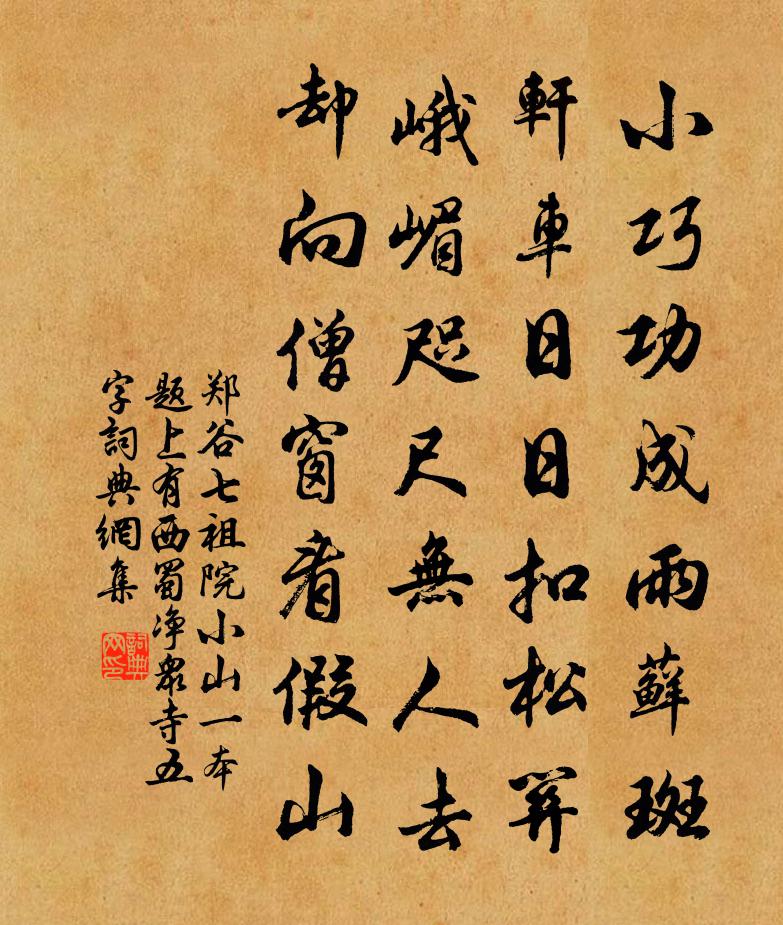 小巧功成雨藓斑
軒車日日扣松関
峨嵋咫尺無人去
却向僧窗看假山
郑谷七祖院小山一本
题上有西蜀净众寺五
字詞典網集
詞典网印